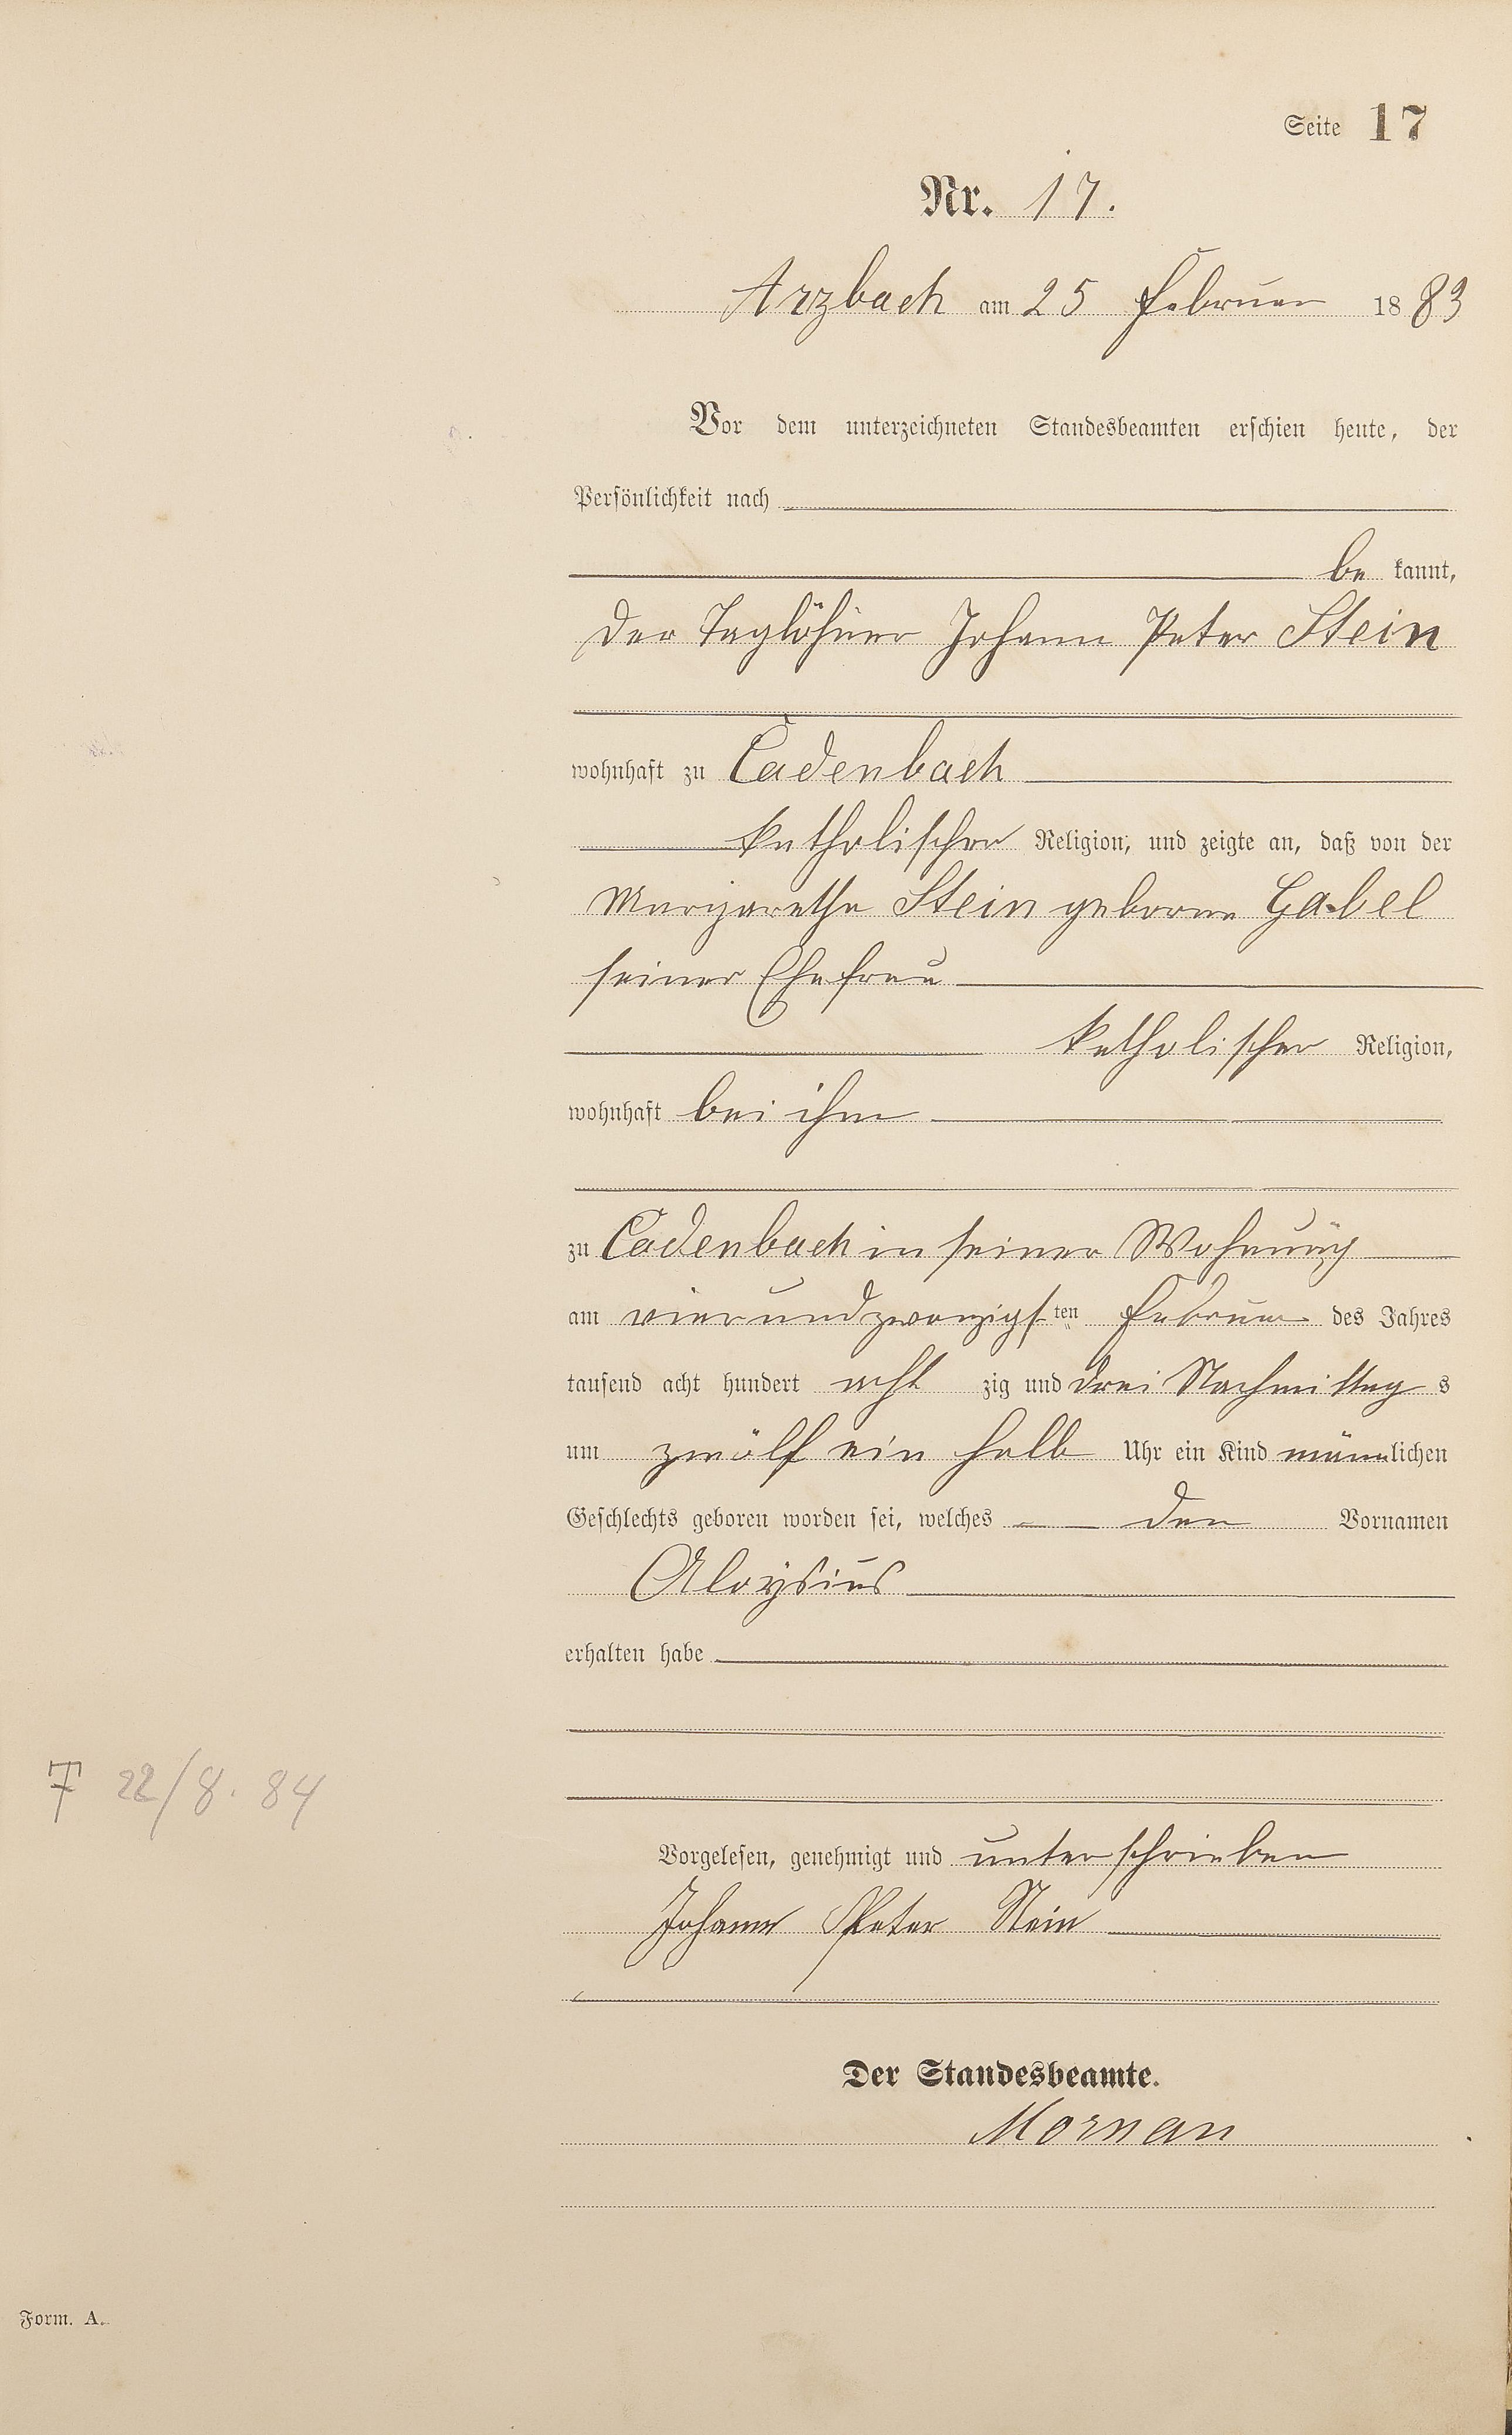 Seite 17
Nr. 17.
Arzbach am 25 Februar 1883
Vor dem unterzeichneten Standesbeamten erschien heute, der
Persönlichkeit nach
be kannt,
der Taglöhner Johann Peter Stein
wohnhaft zu Cadenbach
katholischer Religion, und zeigte an, daß von der
Margaretha Stein geborne Gabel
seiner Ehefrau
katholischer Religion,
wohnhaft bei ihm
zu Cadenbach in seiner Wohnung
am vierundzwanzigsten Februar des Jahres
tausend acht hundert acht zig und drei Nachmittag s
um zwölf ein halb Uhr ein Kind männlichen
Geschlechts geboren worden sei, welches den Vornamen
Aloysius
erhalten habe
† 22/8. 84
Vorgelesen, genehmigt und unterschrieben
Johann Peter Stein
Der Standesbeamte.
Mornan
Form. A.